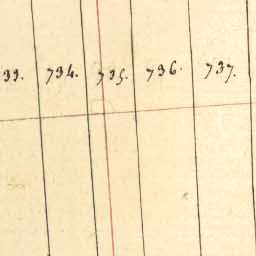 33. 734. 735. 736. 737.